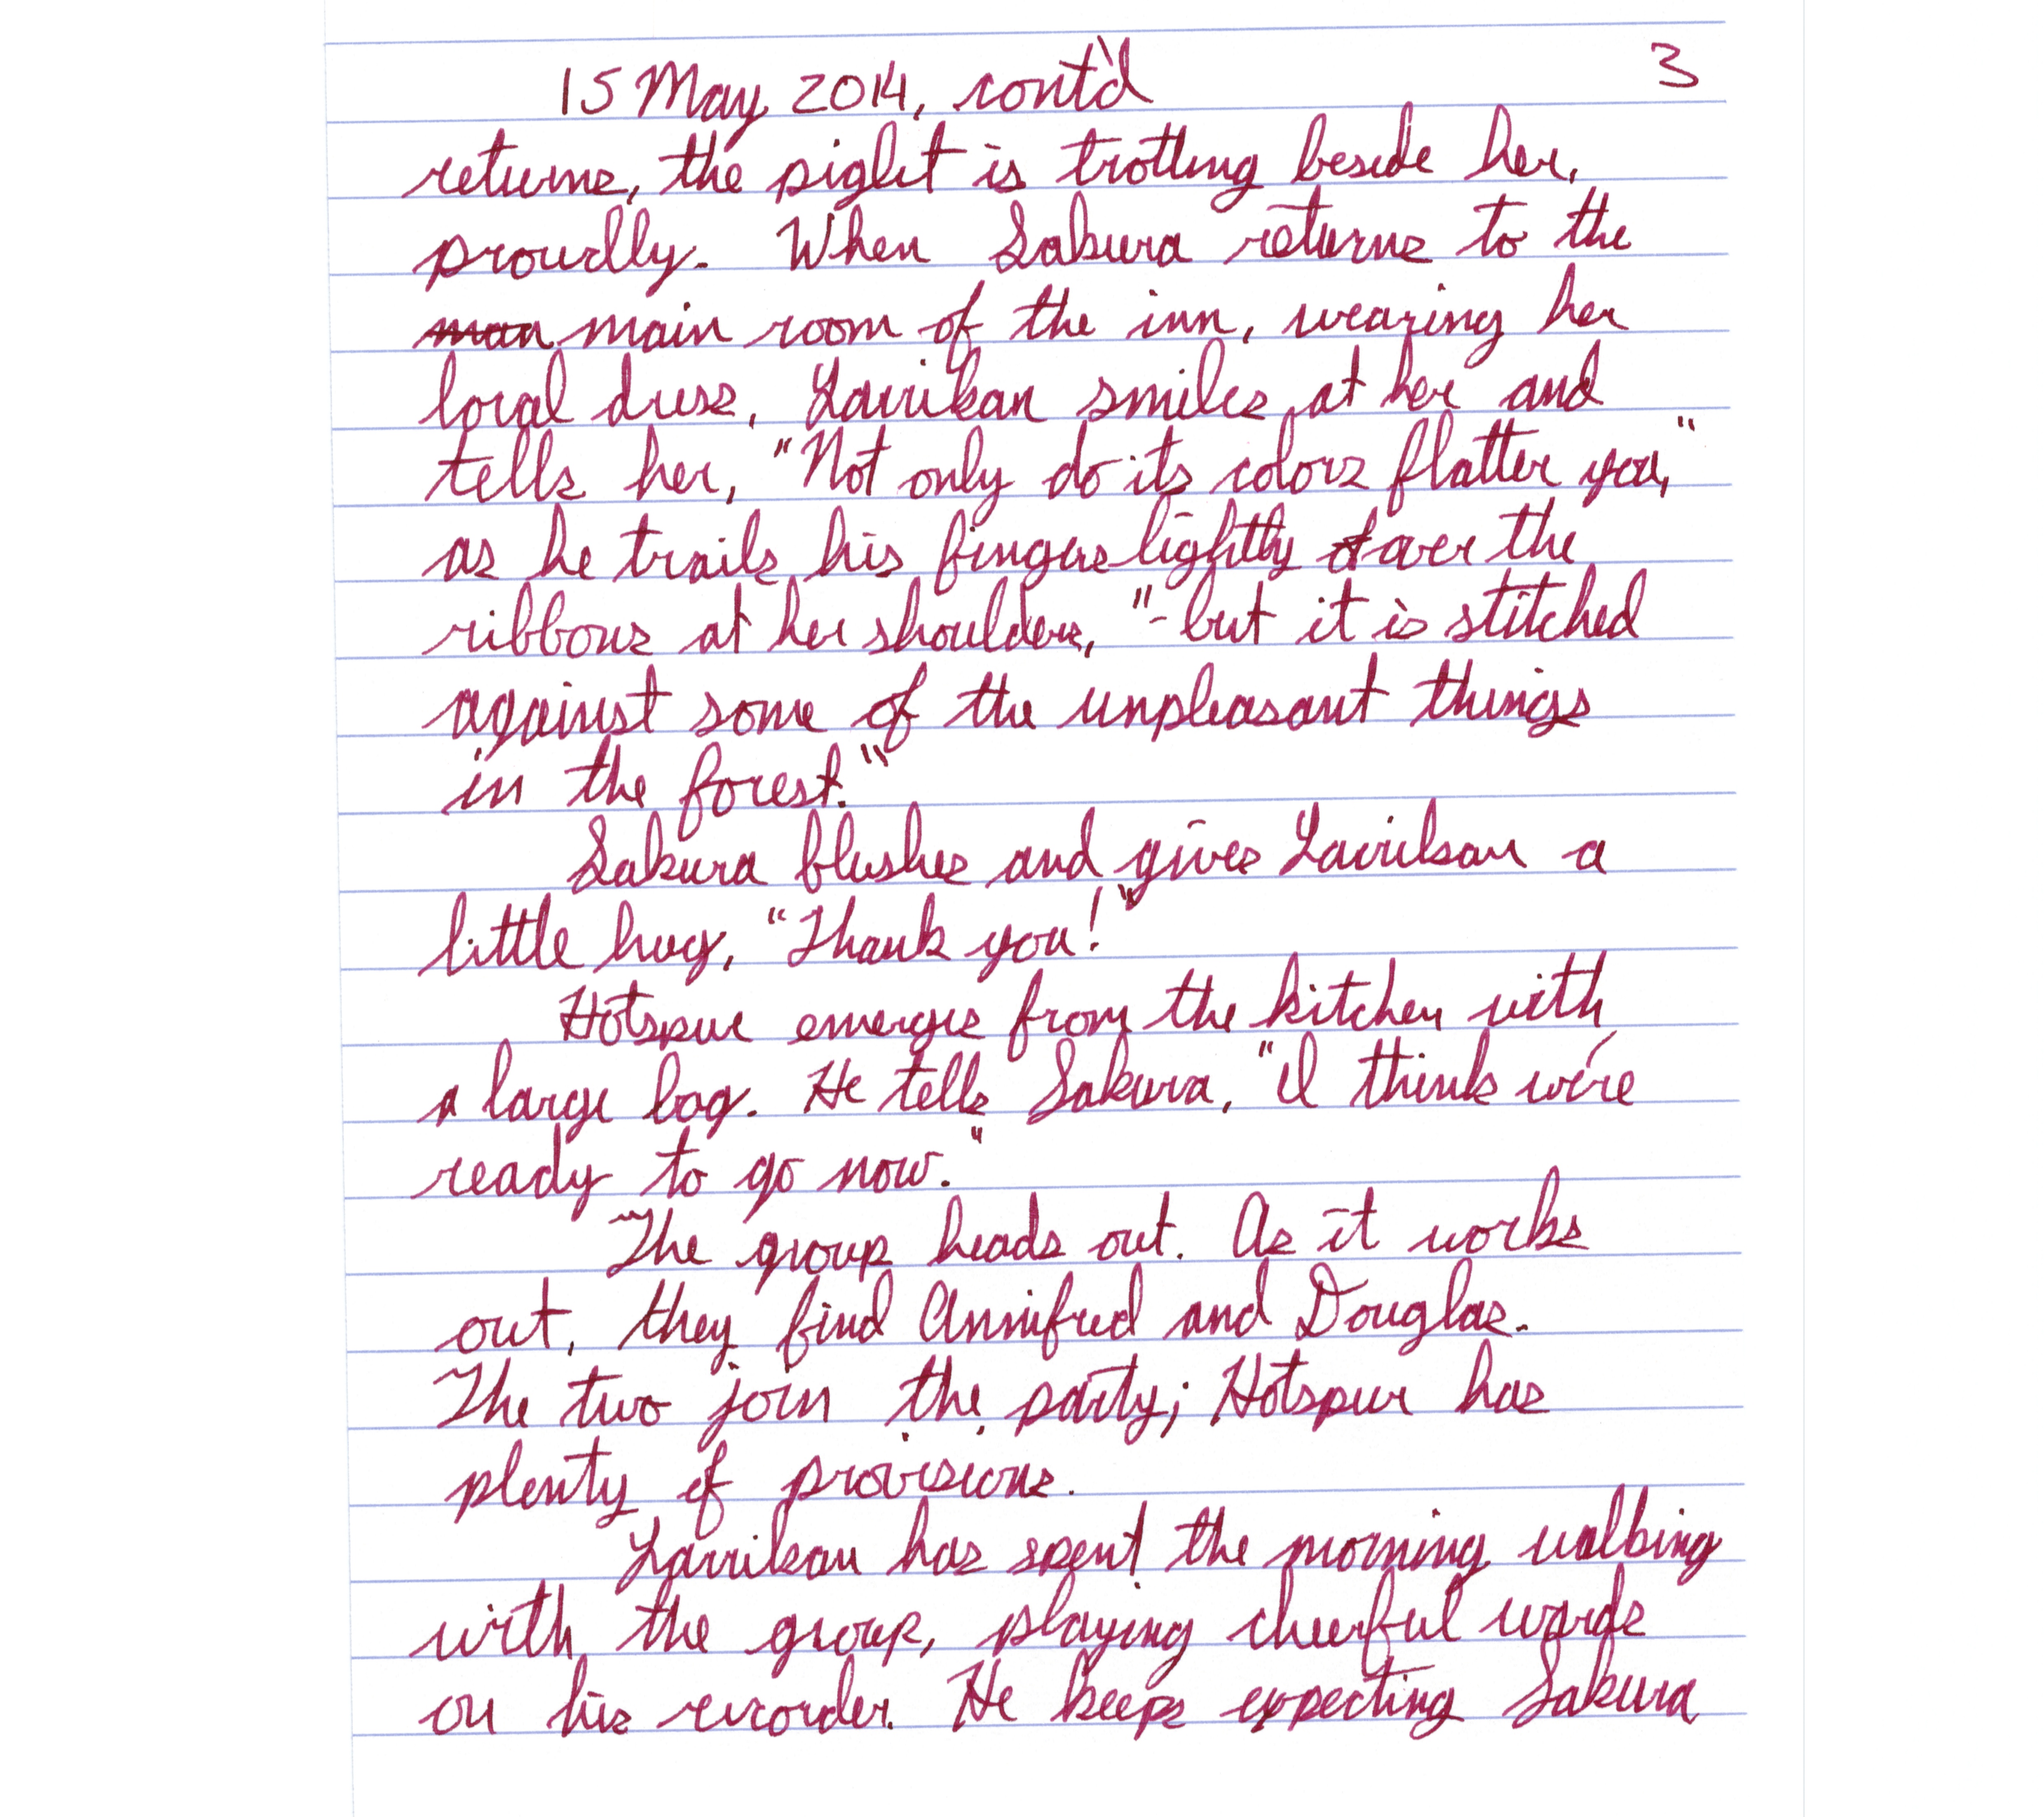 15 May 2014, cont'd 3
returns, the piglet is trotting beside her,
proudly. When Sakura returns to the
man main room of the inn, wearing her
local dress, Larrikan smiles at her and
tells her, "Not only do its colors flatter you,"
as he trails his fingers lightly over the
ribbons at her shoulders, "- but it is stitched
against some of the unpleasant things
in the forest."
Sakura blushes and gives Larrikan a
little hug, "Thank you!"
Hotspur emerges from the kitchen with
a large bag. He tells Sakura, "I think we're
ready to go now."
The group heads out. As it works
out, they find Annifred and Douglas.
The two join the party; Hotspur has
plenty of provisions.
Larrikan has spent the morning walking
with the group, playing cheerful words
on his recorder. He keeps expecting Sakura